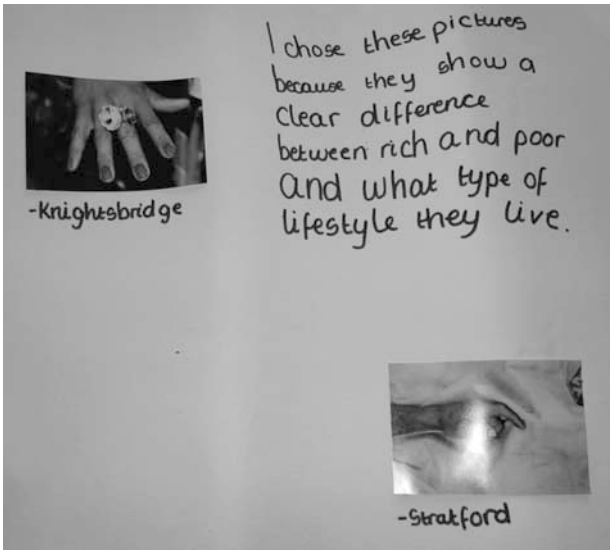 I chose these pictures
because they show a
clear difference
between rich and poor
and what type of
lifestyle they live.
-Knightsbridge
-Stratford